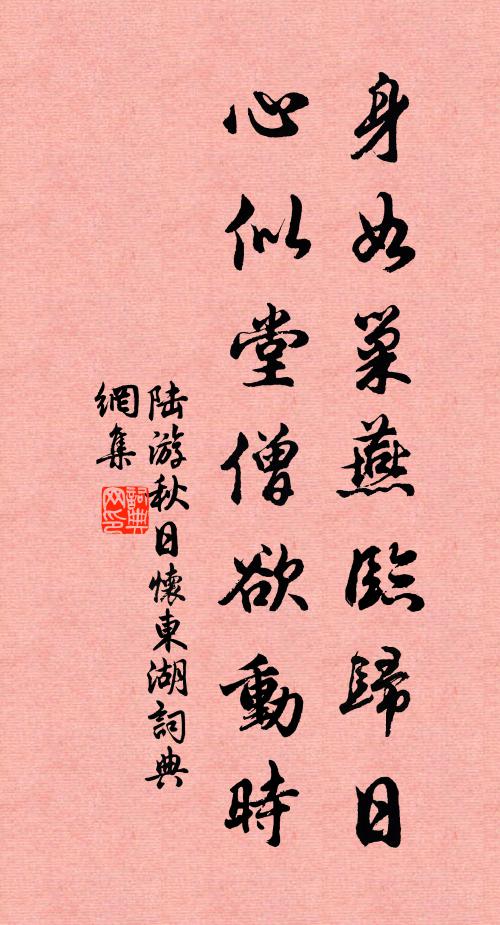 身如巢燕臨歸日
心似堂僧欲動時
陆游秋日懷東湖詞典
網集
詞典
网印